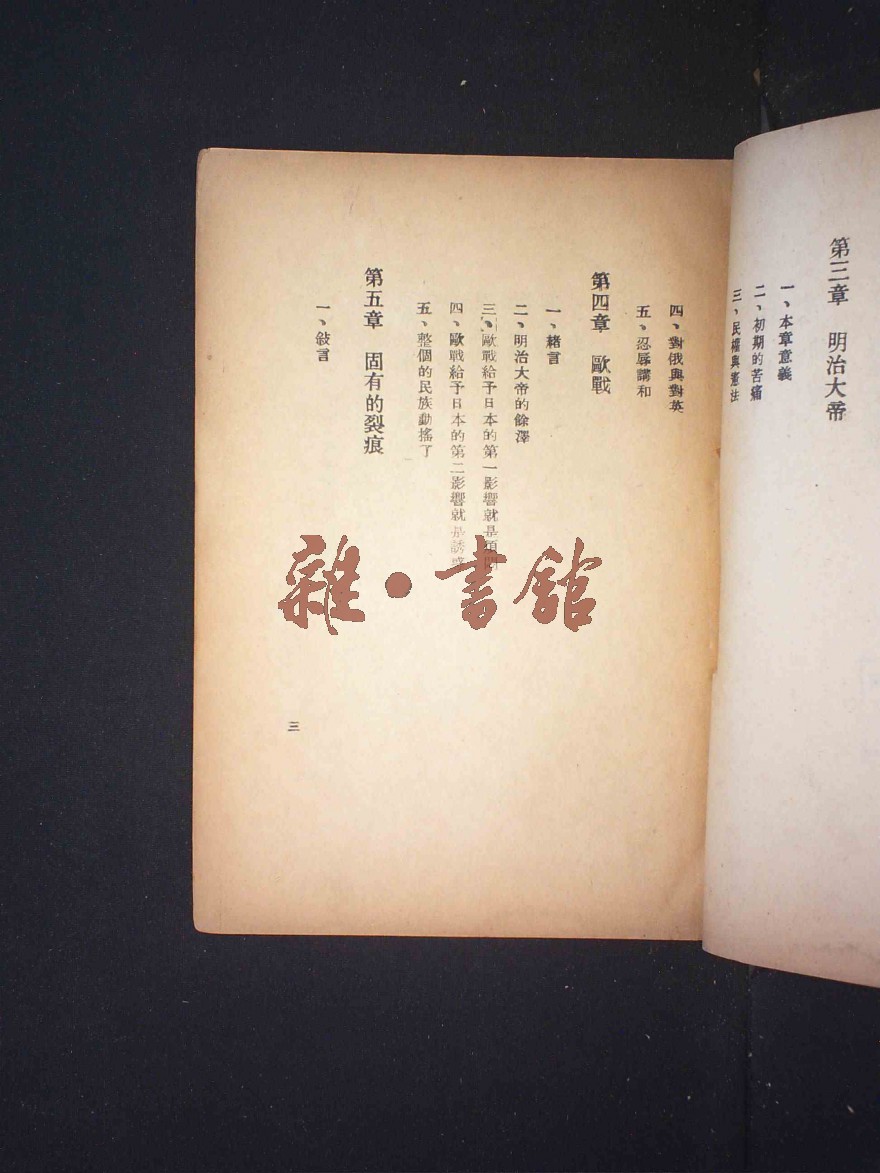 第三章 明治大帝
一、本章意義
二、初期的苦痛
三、民權與憲法
四、對俄與對英
五、忍辱講和
第四章 歐戰
一、緒言
二、明治大帝的餘澤
三、歐戰給予日本的第一影響就是
四、歐戰給予日本的第二影響就是誘惑
五、整個的民族動搖了
第五章 固有的裂痕
一、敍言
三
雜·書館